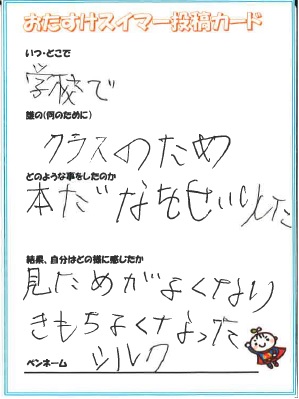 おたすけスイマー投稿カード
いつ・どこで
学校で
誰の(何のために)
クラスのため
どのような事をしたのか
本だなをせいりした
結果、自分はどの様に感じたか
見ためがよくなり
きもちよくなった
ペンネーム シルク